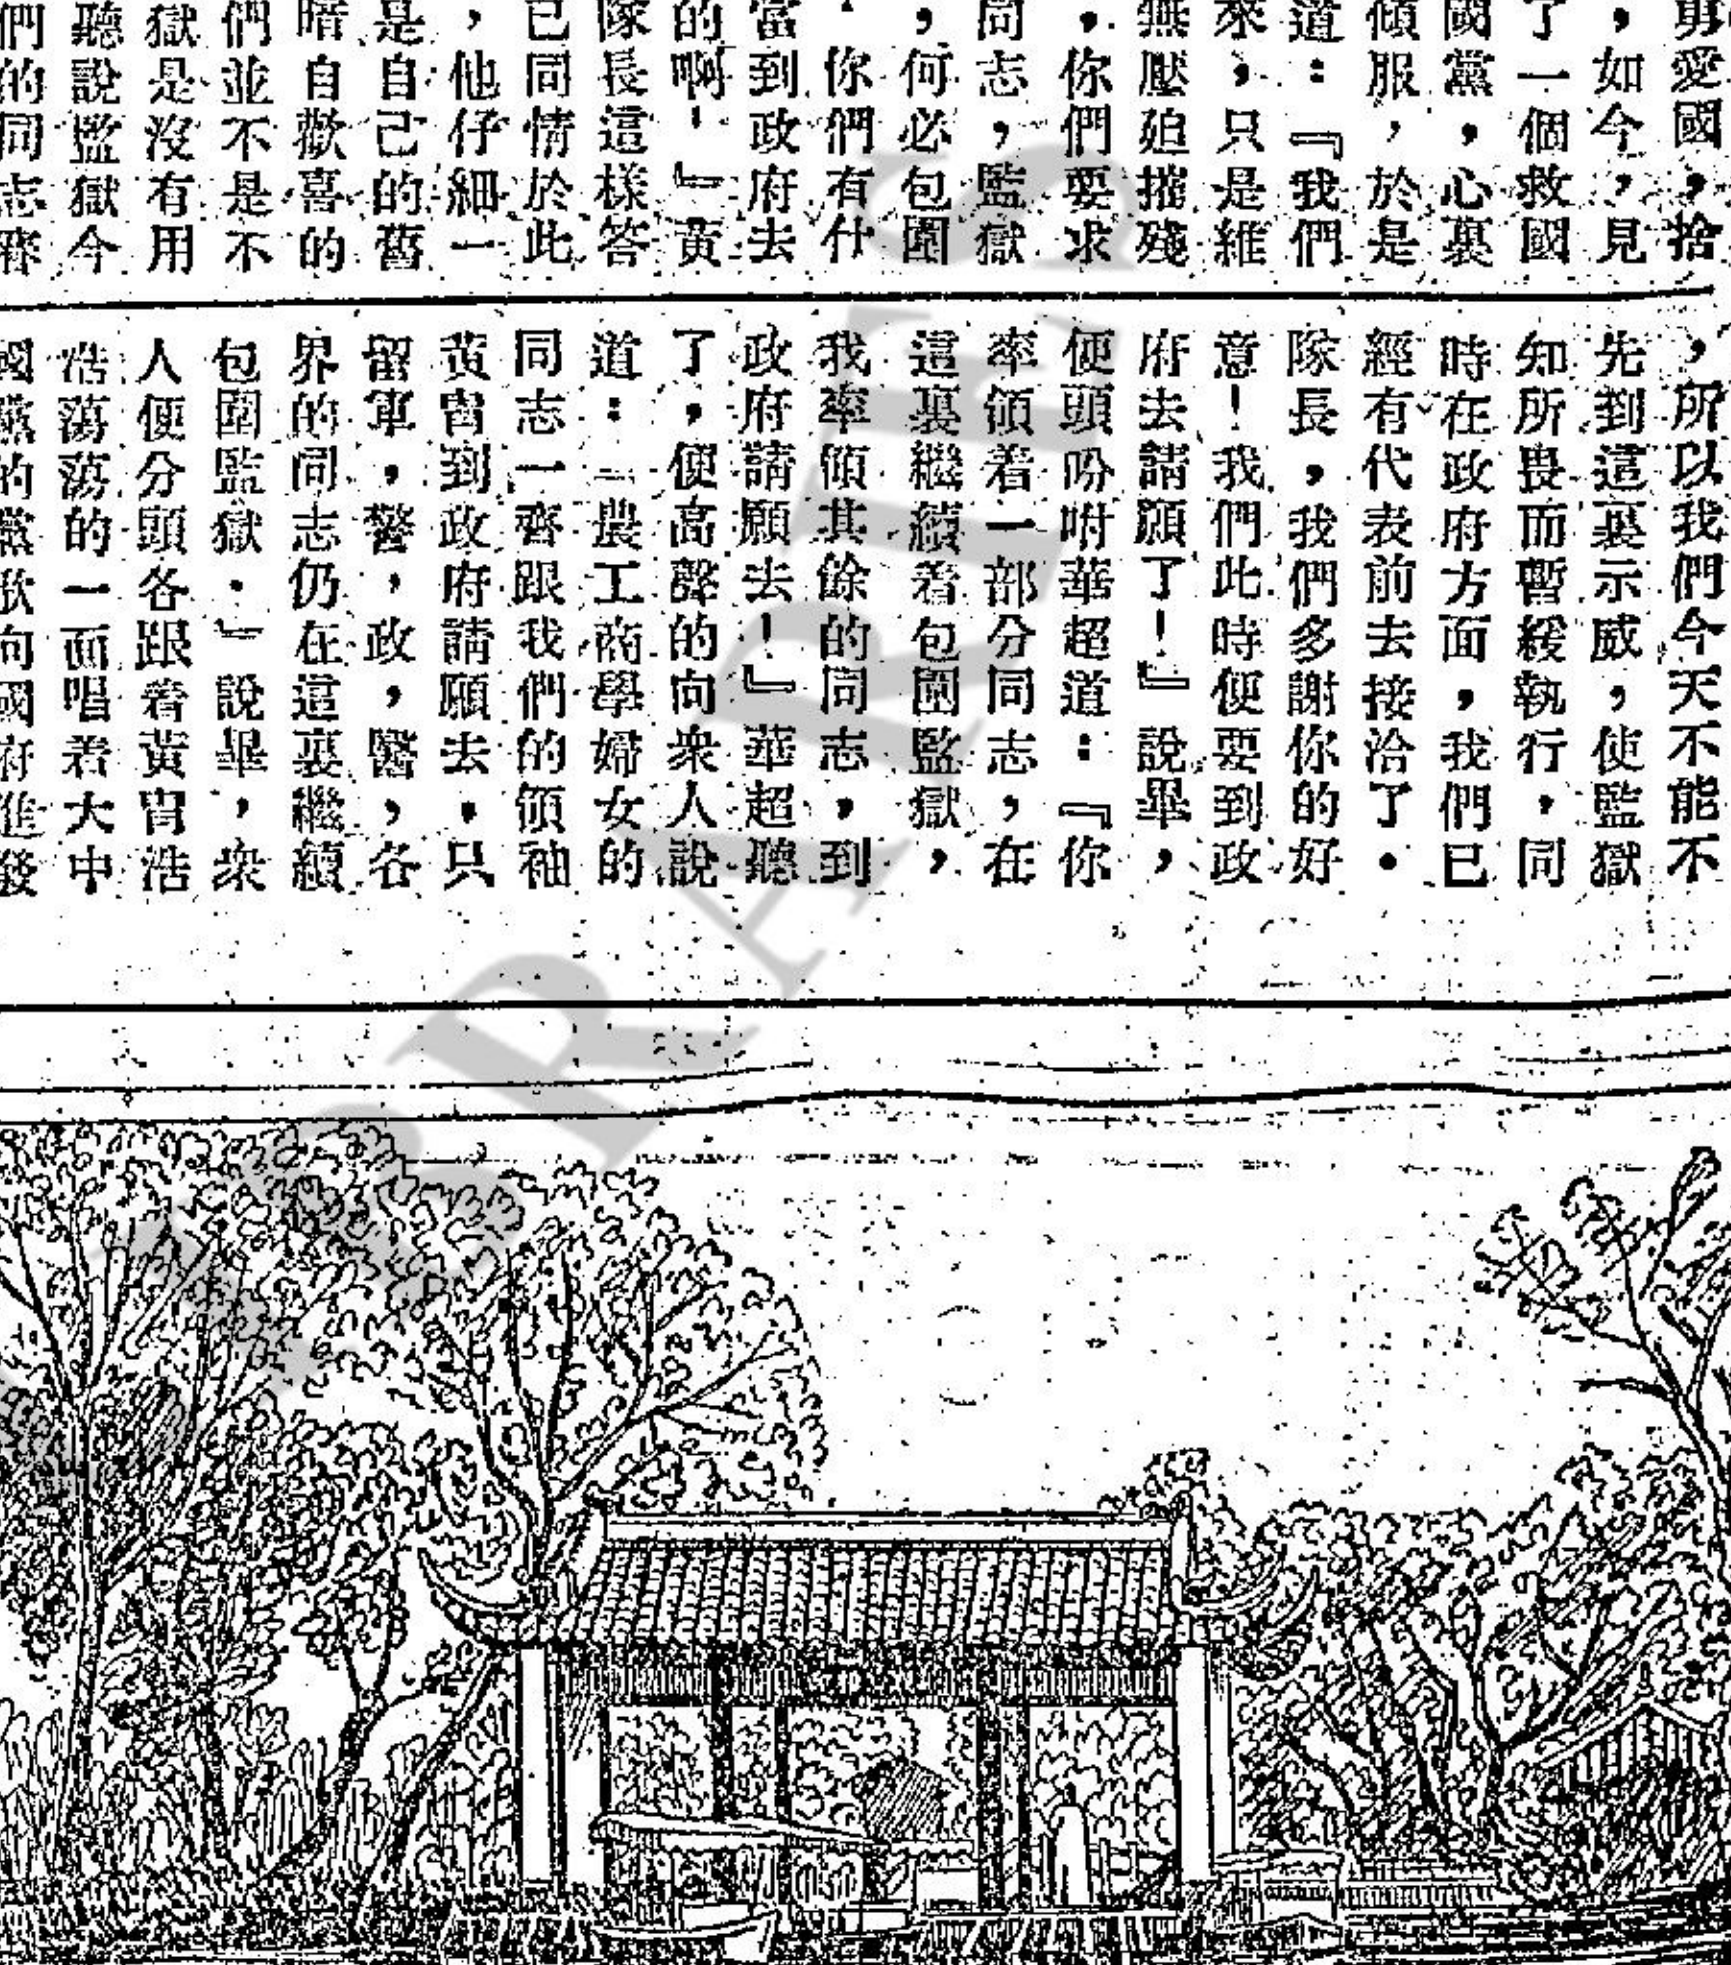 勇愛國，捨
，如今，見
了一個救國
國黨，心裏
傾服，於是
道：『我們
來，只是維
無壓廹摧殘
，你們要求
同志，監獄
，何必包圍
你們有什
當到政府去
的啊！』黃
隊長這樣答
已同情於此
，他仔細一
是自己的舊
暗自歡喜的
們並不是不
獄是沒有用
聽說監獄今
們的同志齊
，所以我們今天不能不
先到這裏示威，使監獄
知所畏而暫緩執行，同
時在政府方面，我們已
經有代表前去接洽了．
隊長，我們多謝你的好
意！我們此時便要到政
府去請願了！』說畢，
便頭吩咐華超道：『你
率領着一部分同志，在
這裏繼續着包圍監獄，
我率領其餘的同志，到
政府請願去！』華超聽
了，便高聲的向衆人說
道：『農工商學婦女的
同志一齊跟我們的領袖
黃胄到政府請願去．只
留軍，警，政，醫，各
界的同志仍在這裏繼續
包圍監獄．』說畢，衆
人便分頭各跟着黃胄浩
浩蕩蕩的一面唱着大中
國黨的黨歌向國府進發
LIBRARIES